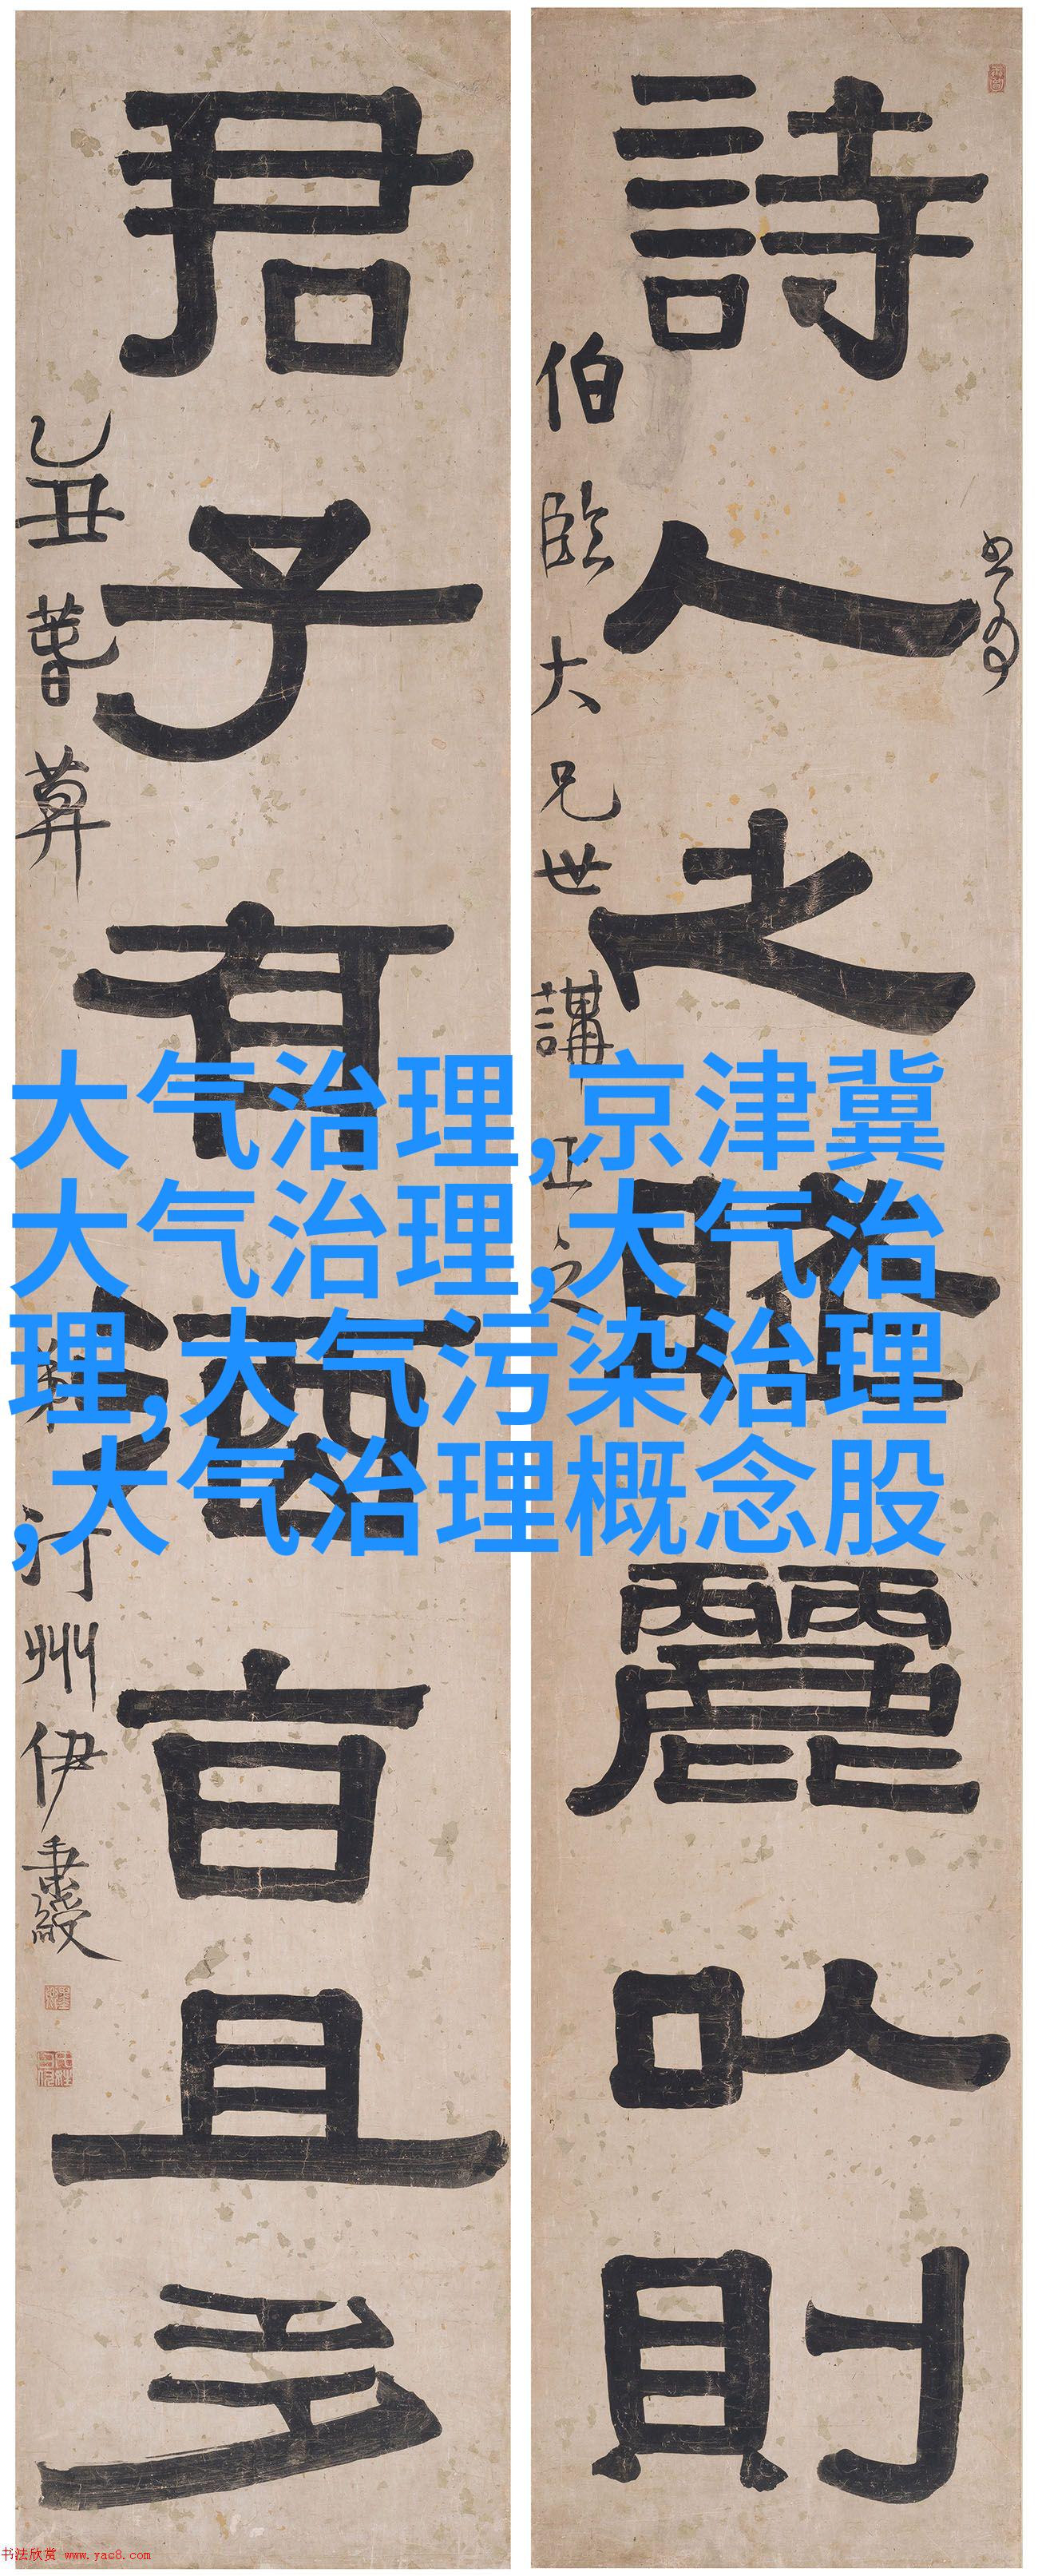 書為
詩人之賦麗以則
伯臨大兄世講正之
君子有酒旨且多
乙丑
汀州伊秉綬
大气治理,京津冀
大气治理,大气治
理,大气污染治理
,大气治理概念股
书法欣赏 www.yac8.com